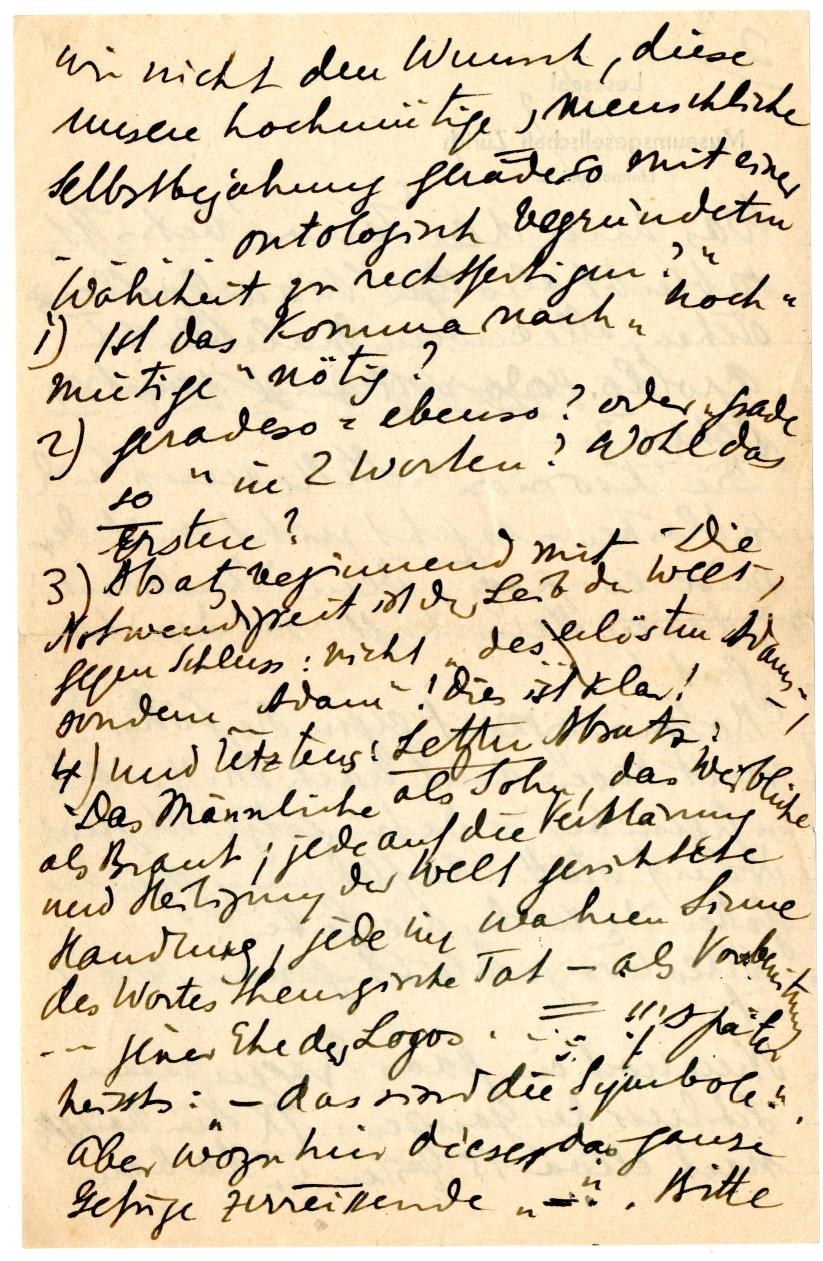 wir nicht den Wunsch, diese
unsere hochmütige, menschliche
Selbstbejahung geradeso mit einer
ontologisch begründeten
Wahrheit zu rechtfertigen?"
1) Ist das Komma nach „hoch-
mütige" nötig?
2) geradeso = ebenso? oder „grade
so" in 2 Worten? Wohl das
Erstere?
3) Absatz beginnend mit „Die
Notwendigkeit ist der Leib der Welt,
gegen Schluss: nicht „des erlösten Adams"
sondern „Adam"! Dies ist klar!
4) und letztens: Letzter Absatz:
„Das Männliche als Sohn, das Weibliche
als Braut; jede auf die Verklärung
und Heiligung der Welt gerichtete
Handlung, jede im wahren Sinne
des Wortes theurgische Tat – als Vorbereitung
-- jener Ehe des Logos.
später
heissts: – das sind die Symbole".
Aber wozu hier dieses das ganze
Gefüge zerreissende „–". Bitte